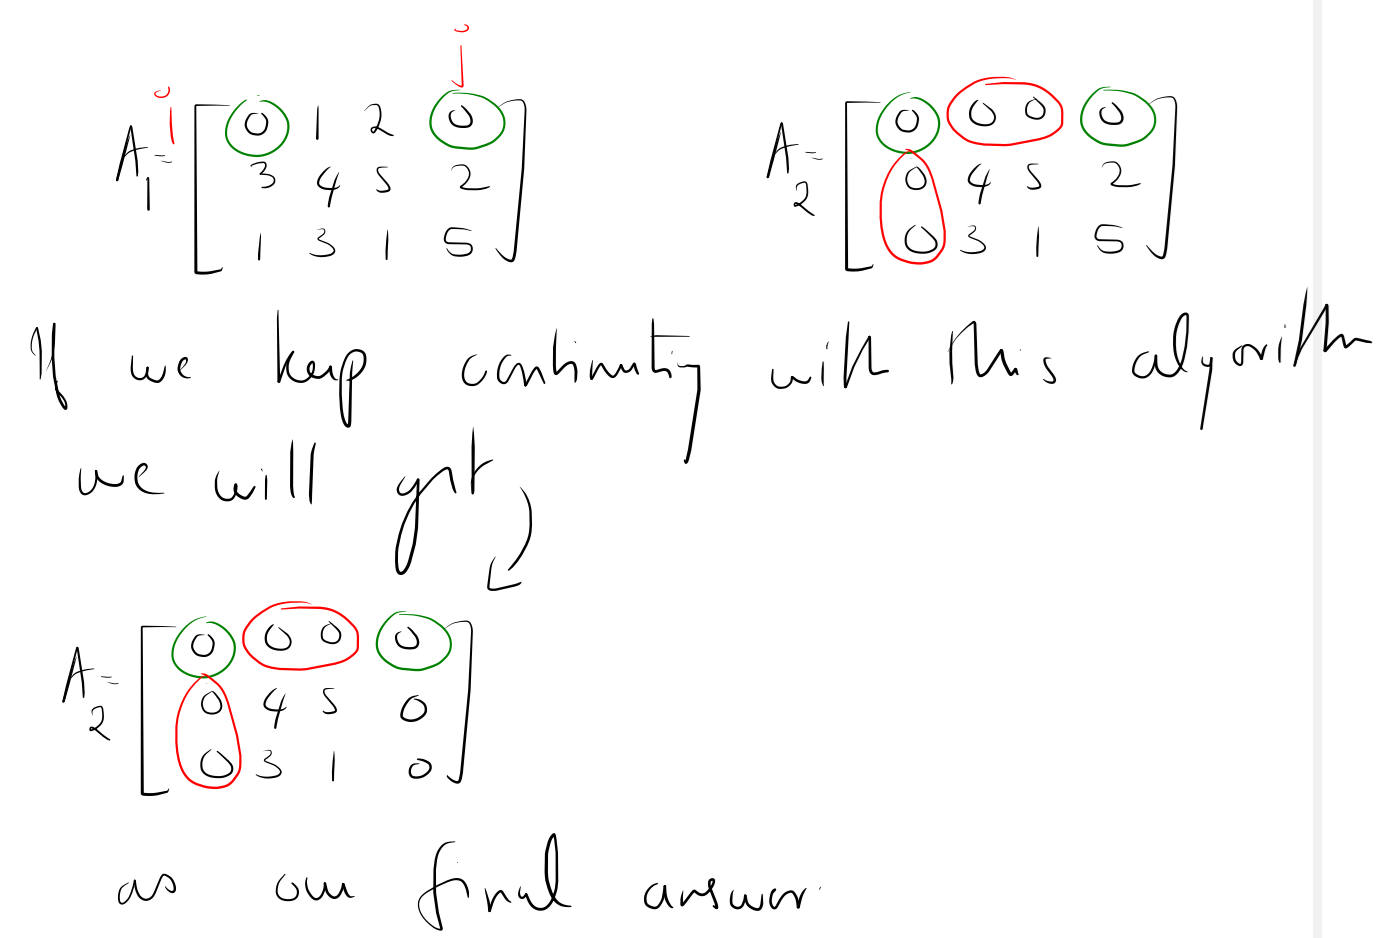 i j
A1 = [ 0 1 2 0
3 4 5 2
1 3 1 5 ]
A2 = [ 0 0 0 0
0 4 5 2
0 3 1 5 ]
If we keep continuting with this algorithm
we will get
A2 = [ 0 0 0 0
0 4 5 0
0 3 1 0 ]
as our final answer.